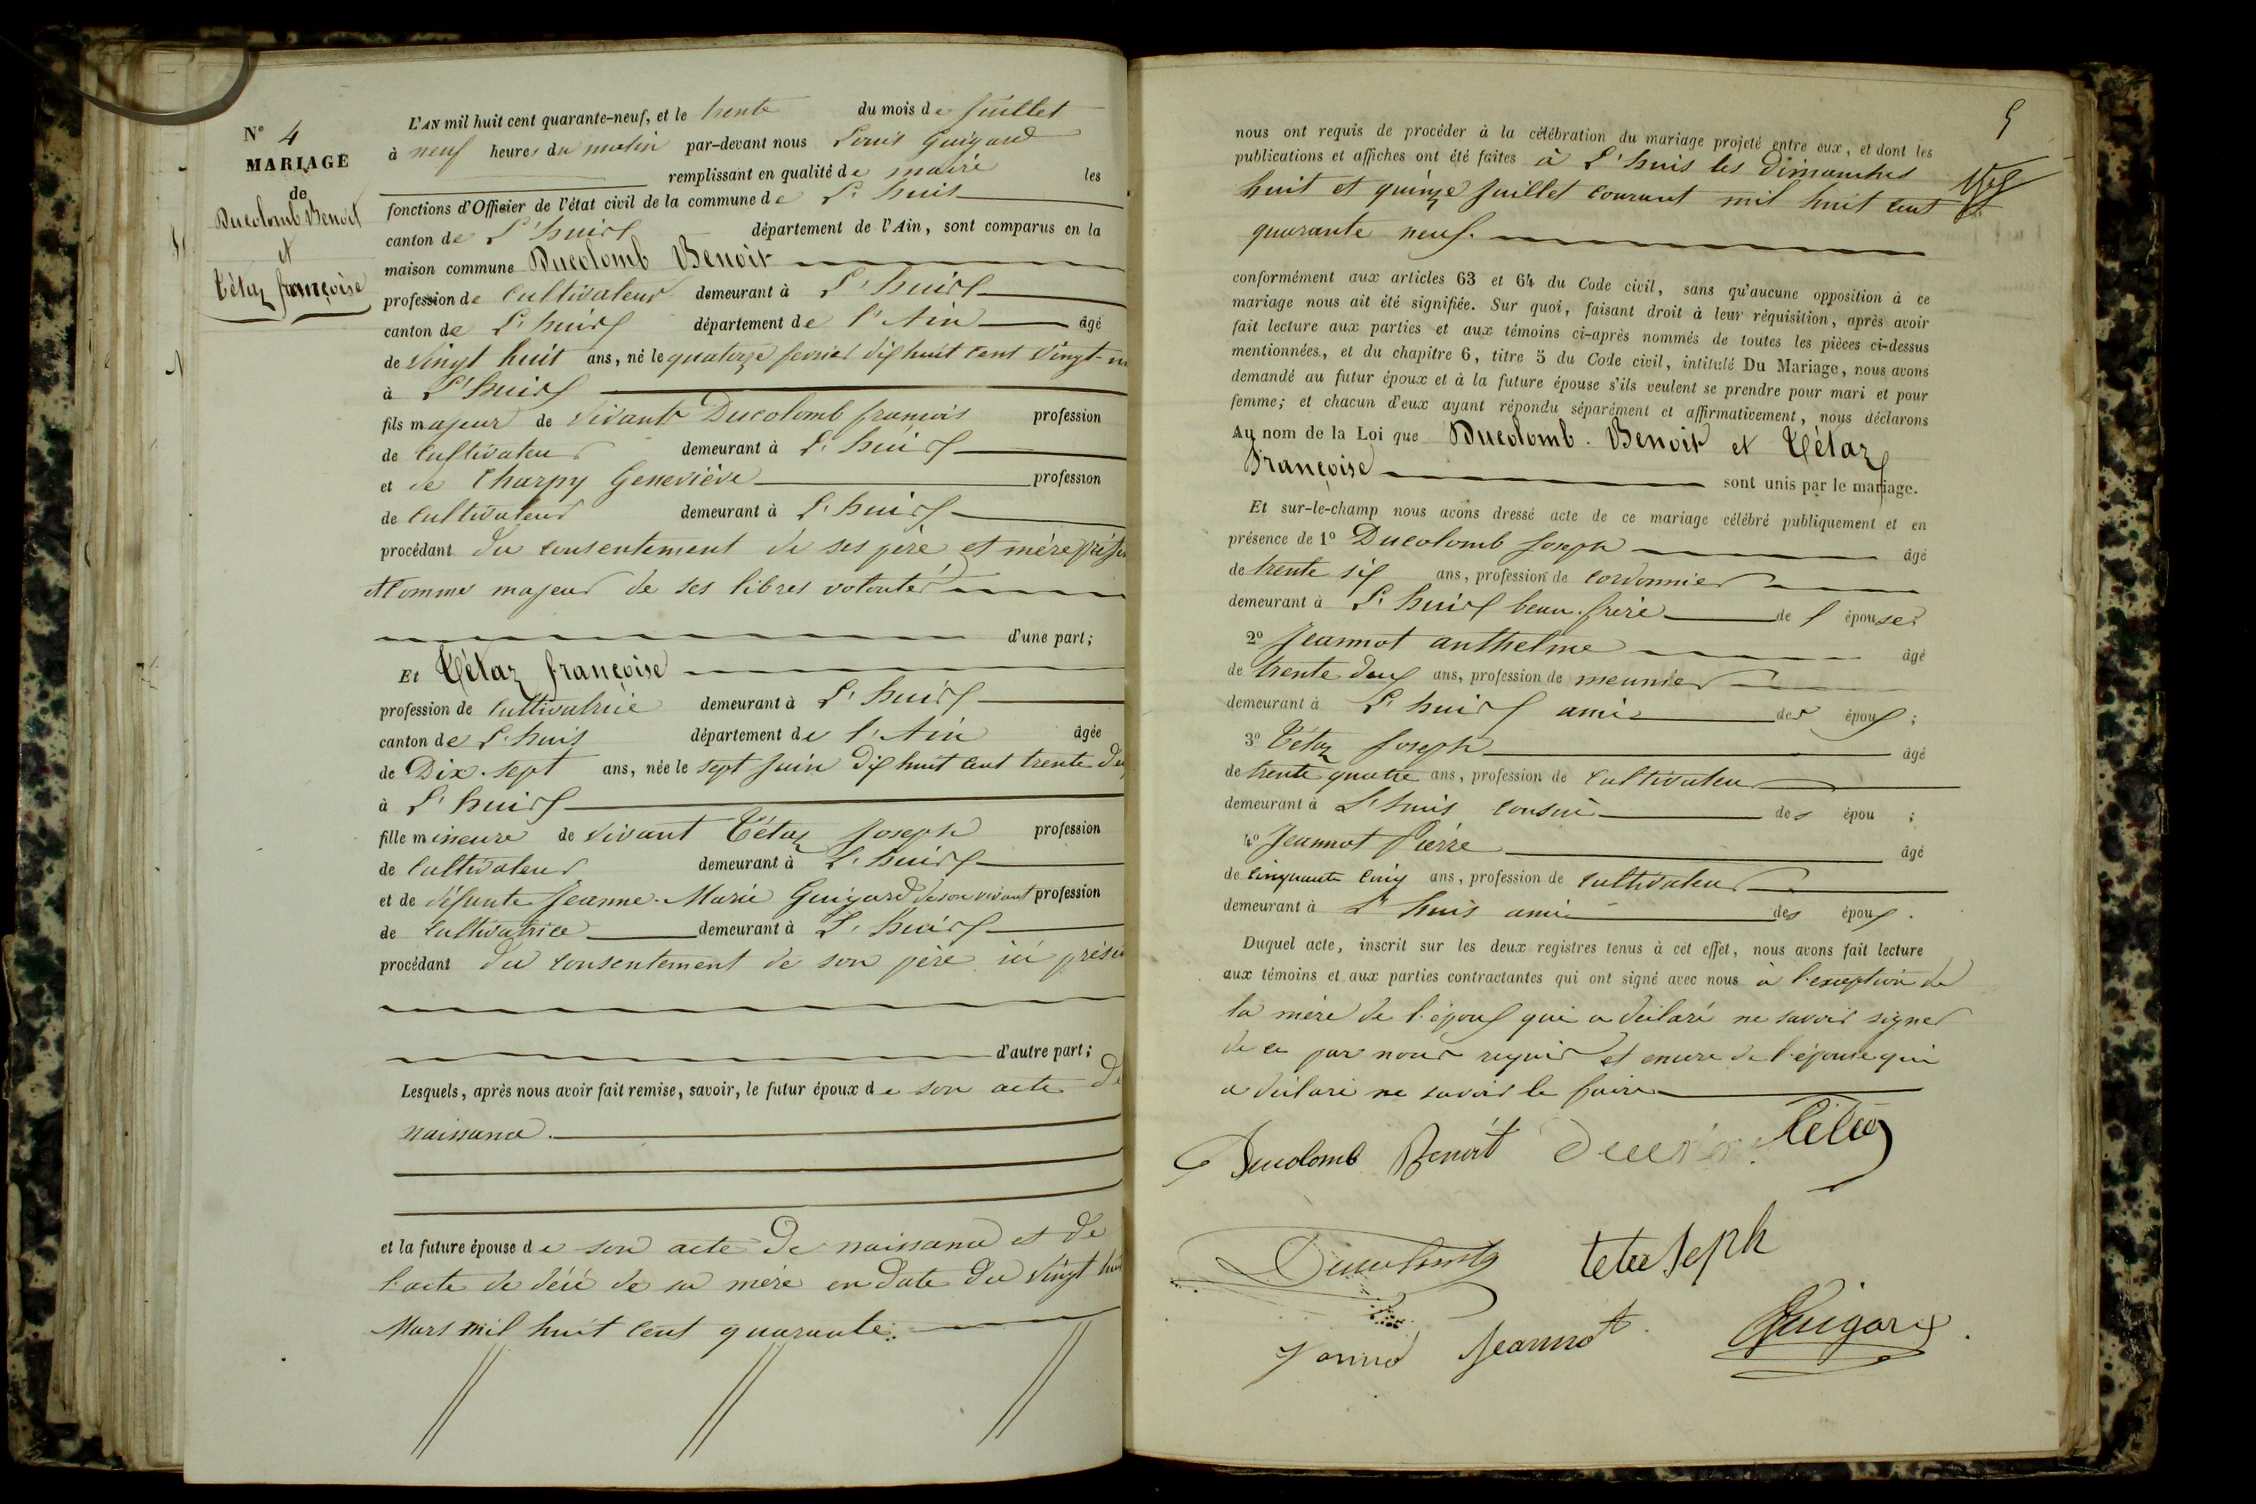 Nº 4
MARIAGE
de
Ducolomb Benoit
et
Tétaz françoise
L'AN mil huit cent quarante-neuf, et le trente du mois de Juillet
à neuf heures du matin par-devant nous Louis Guigard
remplissant en qualité de maire les
fonctions d'Officier de l'état civil de la commune de L'huis
canton de L'huis département de l'Ain, sont comparus en la
maison commune Ducolomb Benoit
profession de cultivateur demeurant à L'huis
canton de L'huis département de l'Ain âgé
de vingt huit ans, né le quatorze fevrier dix huit cent vingt-un
à L'huis
fils majeur de vivants Ducolomb francois profession
de cultivateur demeurant à L'huis
et de Charpy Geneviève profession
de cultivateur demeurant à L'huis
procédant du consentement de ses père et mère
et comme majeur de ses libres volontés
d'une part;
Et Tétaz françoise
profession de cultivatrice demeurant à L'huis
canton de L'huis département de l'Ain âgée
de Dix-sept ans, née le sept Juin dix huit cent trente deux
à L'huis
fille mineure de vivant Tétaz Joseph profession
de cultivateur demeurant à L'huis
et de défunte Jeanne-Marie Guigard de son vivant profession
de cultivatrice demeurant à L'huis
procédant du consentement de son père ici présent
d'autre part;
Lesquels, après nous avoir fait remise, savoir, le futur époux de son acte de
naissance.
et la future épouse de son acte de naissance et de
l'acte de décé de sa mère en date du vingt huit
Mars mil huit cent quarante.
5
nous ont requis de procéder à la célébration du mariage projeté entre eux, et dont les
publications et affiches ont été faites à L'huis les Dimanches
huit et quinze Juillet courant mil huit cent
quarante neuf.
conformément aux articles 63 et 64 du Code civil, sans qu'aucune opposition à ce
mariage nous ait été signifiée. Sur quoi, faisant droit à leur réquisition, après avoir
fait lecture aux parties et aux témoins ci-après nommés de toutes les pièces ci-dessus
mentionnées, et du chapitre 6, titre 5 du Code civil, intitulé Du Mariage, nous avons
demandé au futur époux et à la future épouse s'ils veulent se prendre pour mari et pour
femme; et chacun d'eux ayant répondu séparément et affirmativement, nous déclarons
Au nom de la Loi que Ducolomb Benoit et Tétaz
Françoise sont unis par le mariage.
Et sur-le-champ nous avons dressé acte de ce mariage célébré publiquement et en
présence de 1º Ducolomb Joseph âgé
de trente six ans, profession de cordonnier
demeurant à L'huis beau-frère de l épouse
2º Jeannot anthelme âgé
de trente deux ans, profession de meunier
demeurant à L'huis ami des époux ;
3º Tétaz Joseph âgé
de trente quatre ans, profession de cultivateur
demeurant à L'huis cousin des épou ;
4º Jeannot Pierre âgé
de cinquante cinq ans, profession de cultivateur
demeurant à L'huis ami des époux .
Duquel acte, inscrit sur les deux registres tenus à cet effet, nous avons fait lecture
aux témoins et aux parties contractantes qui ont signé avec nous à l'exception de
la mère de l'époux qui a déclaré ne savoir signer
de ce par nous requis et encore de l'épouse qui
a déclaré ne savoir le faire
Ducolomb Benoit
Jeannot Guigard